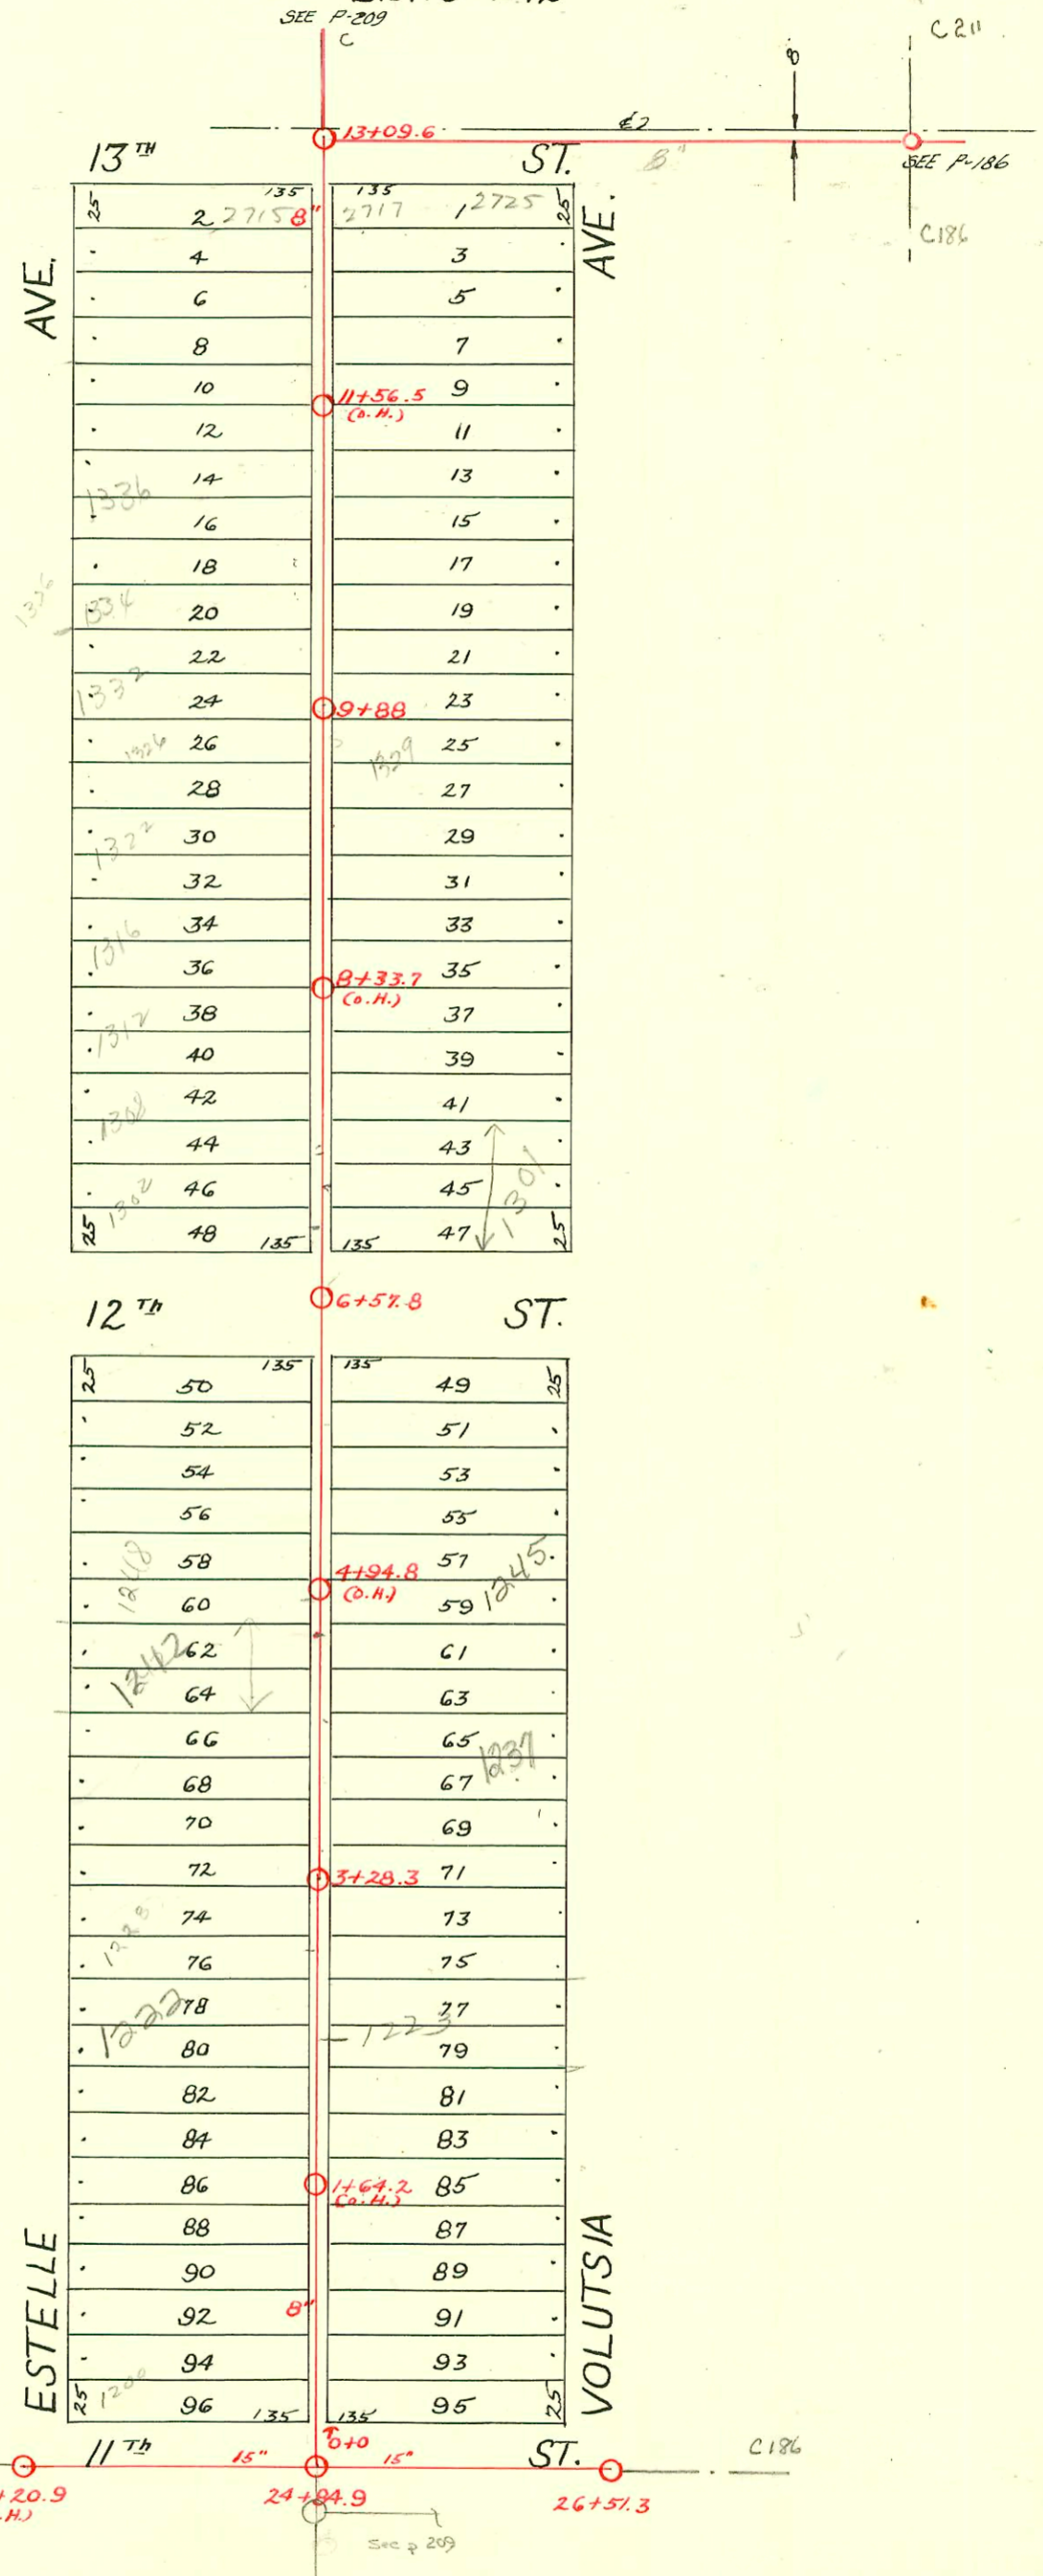 SEE P-209
C
C 211
8
13+09.6
¢2
13TH ST.
8"
SEE P-186
C186
135 135
25 2 2715 8" 2717 1 2725 25
AVE. AVE.
4 3
6 5
8 7
10 11+56.5 9
(D.H.)
12 11
14 13
1336
16 15
18 17
1336 1334 20 19
22 21
1332 24 9+88 23
1326 26 1329 25
28 27
1322 30 29
32 31
34 33
1316
36 8+33.7 35
(D.H.)
38 37
1312
40 39
42 41
1308
44 43
1301
1302 46 45
25 48 135 135 47 25
12Th 6+57.8 ST.
135 135
25 50 49 25
52 51
54 53
56 55
1248 58 4+94.8 57 1245
(D.H.)
60 59
1242 62 61
64 63
66 65
1237
68 67
70 69
72 3+28.3 71
74 73
76 75
1222 78 77
1223
80 79
82 81
84 83
86 1+64.2 85
(D.H.)
88 87
90 89
8"
92 91
94 93
1200
25 96 135 135 95 25
ESTELLE VOLUTSIA
0+0
11Th 15" 15" ST. C186
+20.9 24+84.9 26+51.3
.H.)
See p 209